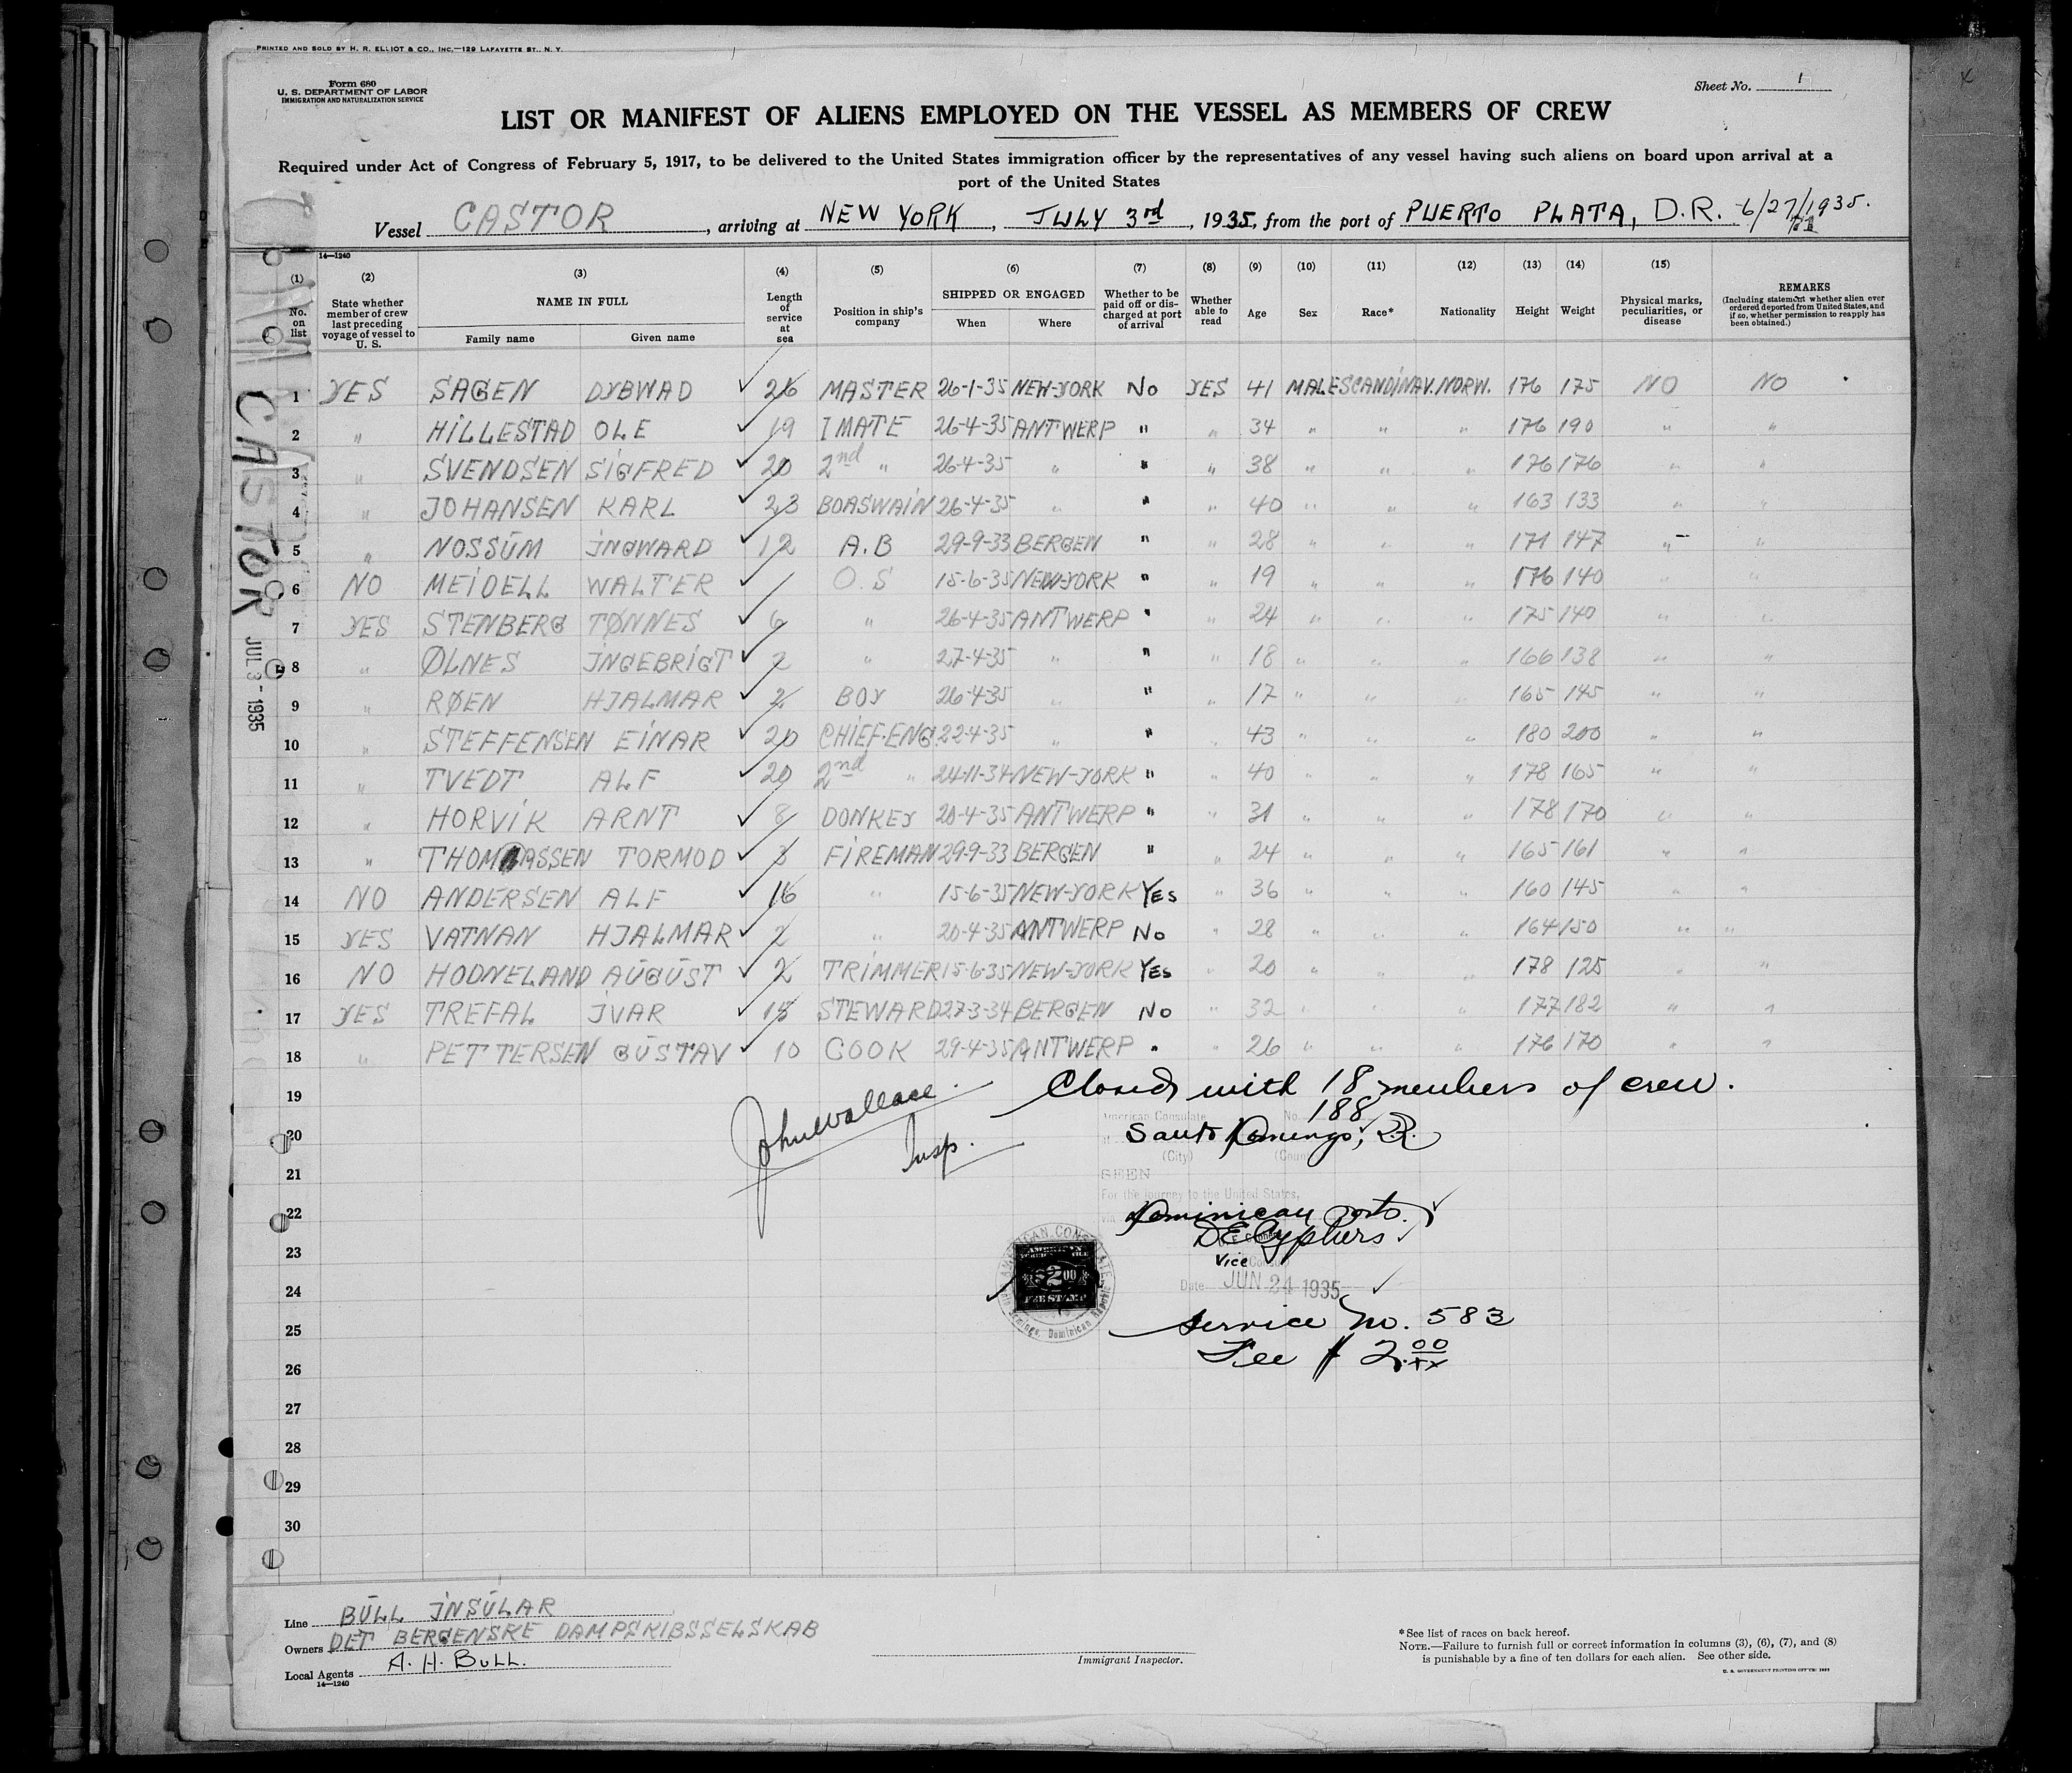 PRINTED AND SOLD BY H. R. ELLIOT & CO., INC.—129 LAFAYETTE ST., N. Y.
Form 680
U. S. DEPARTMENT OF LABOR
IMMIGRATION AND NATURALIZATION SERVICE
Sheet No. 1
LIST OR MANIFEST OF ALIENS EMPLOYED ON THE VESSEL AS MEMBERS OF CREW
Required under Act of Congress of February 5, 1917, to be delivered to the United States immigration officer by the representatives of any vessel having such aliens on board upon arrival at a
port of the United States
Vessel CASTOR, arriving at NEW YORK, JULY 3rd, 1935, from the port of PUERTO PLATA, D.R. 6/27/1935.
14—1240
(1) No. on list
(2) State whether member of crew last preceding voyage of vessel to U. S.
(3) NAME IN FULL
Family name Given name
(4) Length of service at sea
(5) Position in ship's company
(6) SHIPPED OR ENGAGED
When Where
(7) Whether to be paid off or discharged at port of arrival
(8) Whether able to read
(9) Age
(10) Sex
(11) Race*
(12) Nationality
(13) Height
(14) Weight
(15) Physical marks, peculiarities, or disease
REMARKS
(Including statement whether alien ever ordered deported from United States, and if so, whether permission to reapply has been obtained.)
1 YES SAGEN DYBWAD 26 MASTER 26-1-35 NEW-YORK No YES 41 MALE SCANDINAV. NORW. 176 175 NO NO
2 " HILLESTAD OLE 19 I MATE 26-4-35 ANTWERP " " 34 " " " 176 190 " "
3 " SVENDSEN SIGFRED 20 2nd " 26-4-35 " " " 38 " " " 176 176 " "
4 " JOHANSEN KARL 23 BOASWAIN 26-4-35 " " " 40 " " " 163 133 " "
5 " NOSSŪM INGWARD 12 A.B 29-9-33 BERGEN " " 28 " " " 171 147 " "
6 NO MEIDELL WALTER 1 O.S 15-6-35 NEW-YORK " " 19 " " " 176 140 " "
7 YES STENBERG TØNNES 6 " 26-4-35 ANTWERP " " 24 " " " 175 140 " "
8 " ØLNES INGEBRIGT 2 " 27-4-35 " " " 18 " " " 166 138 " "
9 " RØEN HJALMAR 2 BOY 26-4-35 " " " 17 " " " 165 145 " "
10 " STEFFENSEN EINAR 20 CHIEF.ENG. 22-4-35 " " " 43 " " " 180 200 " "
11 " TVEDT ALF 20 2nd " 24-11-34 NEW-YORK " " 40 " " " 178 165 " "
12 " HORVIK ARNT 8 DONKEY 20-4-35 ANTWERP " " 31 " " " 178 170 " "
13 " THOMASSEN TORMOD 3 FIREMAN 29-9-33 BERGEN " " 24 " " " 165 161 " "
14 NO ANDERSEN ALF 16 " 15-6-35 NEW-YORK YES " 36 " " " 160 145 " "
15 YES VATNAN HJALMAR 2 " 20-4-35 ANTWERP No " 28 " " " 164 150 " "
16 NO HODNELAND AŪGŪST 2 TRIMMER 15-6-35 NEW-YORK YES " 20 " " " 178 125 " "
17 YES TREFAL IVAR 15 STEWARD 27-3-34 BERGEN No " 32 " " " 177 182 " "
18 " PETTERSEN GŪSTAV 10 COOK 29-4-35 ANTWERP " " 26 " " " 176 170 " "
19
20
21
22
23
24
25
26
27
28
29
30
Closed with 18 members of crew.
John Wallace
Insp.
American Consulate No. 188
Santo Domingo, D.R.
(City)
SEEN
For the journey to the United States,
Via Dominican ports.
D E Cyphers
Vice Consul
Date JUN 24 1935
Service No. 583
Fee $ 2.00
AMERICAN CONSULATE
Dominican Republic
$2.00
FEE STAMP
CASTOR
JUL 3 - 1935
Line BŪLL INSŪLAR
Owners DET BERGENSKE DAMPSKIBSSELSKAB
Local Agents A. H. BULL.
14—1240
Immigrant Inspector.
*See list of races on back hereof.
NOTE.—Failure to furnish full or correct information in columns (3), (6), (7), and (8)
is punishable by a fine of ten dollars for each alien. See other side.